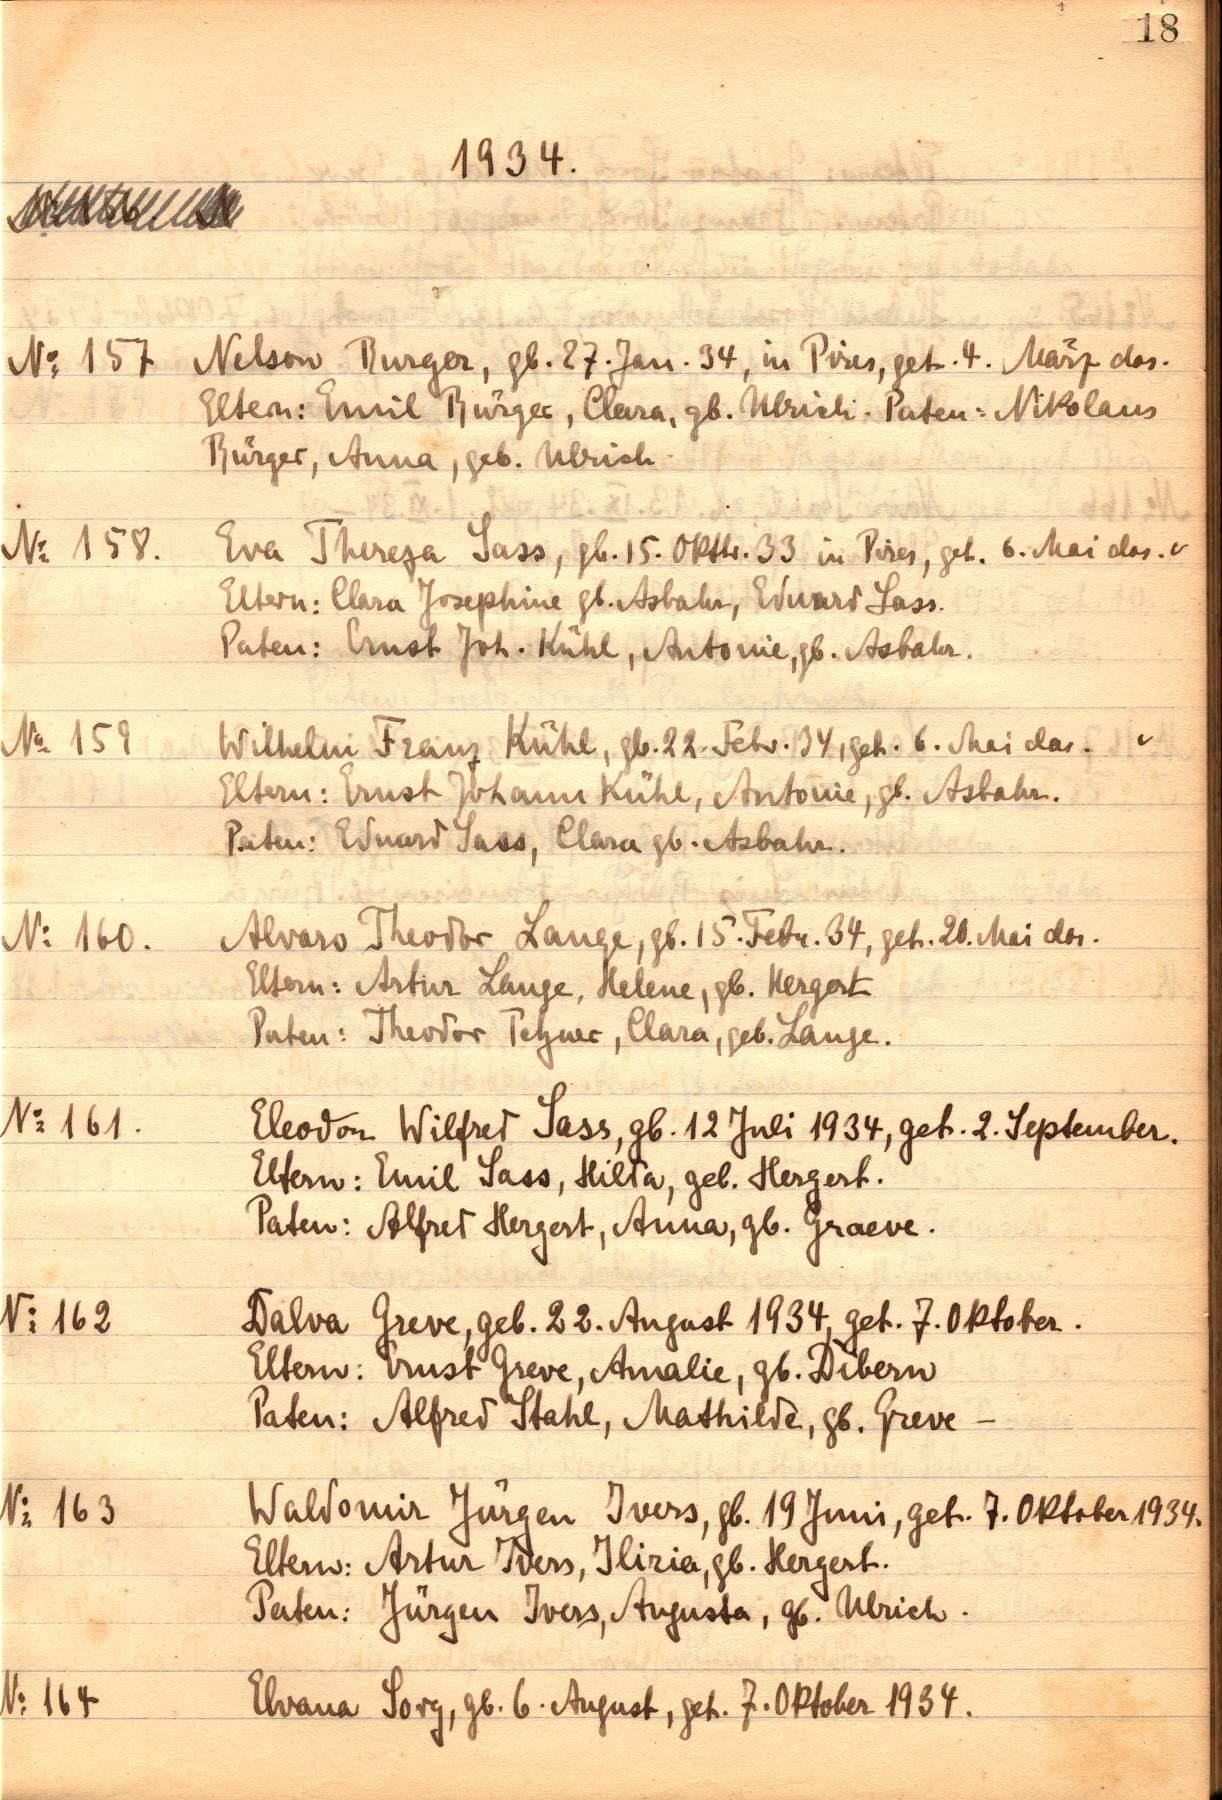 18
1934.
No 157 Nelson Burger, gb. 27. Jan. 34, in Pires, get. 4. März das.
Eltern: Emil Bürger, Clara, gb. Ulrich. Paten: Nikolaus
Bürger, Anna, geb. Ulrich.
No 158. Eva Thereza Sass, gb. 15. Oktbr. 33 in Pires, get. 6. Mai das.
Eltern: Clara Josephine gb. Asbahr, Eduard Sass.
Paten: Ernst Joh. Kühl, Antonie, gb. Asbahr.
No 159 Wilhelm Franz Kühl, gb. 22. Febr. 34, get. 6. Mai das.
Eltern: Ernst Johann Kühl, Antonie, gb. Asbahr.
Paten: Eduard Sass, Clara gb. Asbahr.
No 160. Alvaro Theodor Lange, gb. 15. Febr. 34, get. 20. Mai das.
Eltern: Artur Lange, Helene, gb. Hergert
Paten: Theodor Tetzner, Clara, geb. Lange.
No 161. Eleodor Wilfred Sass, gb. 12 Juli 1934, get. 2. September.
Eltern: Emil Sass, Hilda, geb. Hergert.
Paten: Alfred Hergert, Anna, gb. Graeve.
No 162 Dalva Greve, geb. 22. August 1934, get. 7. Oktober.
Eltern: Ernst Greve, Amalie, gb. Dibern
Paten: Alfred Stahl, Mathilde, gb. Greve –
No 163 Waldomir Jürgen Ivers, gb. 19 Juni, get. 7. Oktober 1934.
Eltern: Artur Ivers, Iliria, gb. Hergert.
Paten: Jürgen Ivers, Augusta, gb. Ulrich.
No 164 Elvana Sorg, gb. 6. August, get. 7. Oktober 1934.